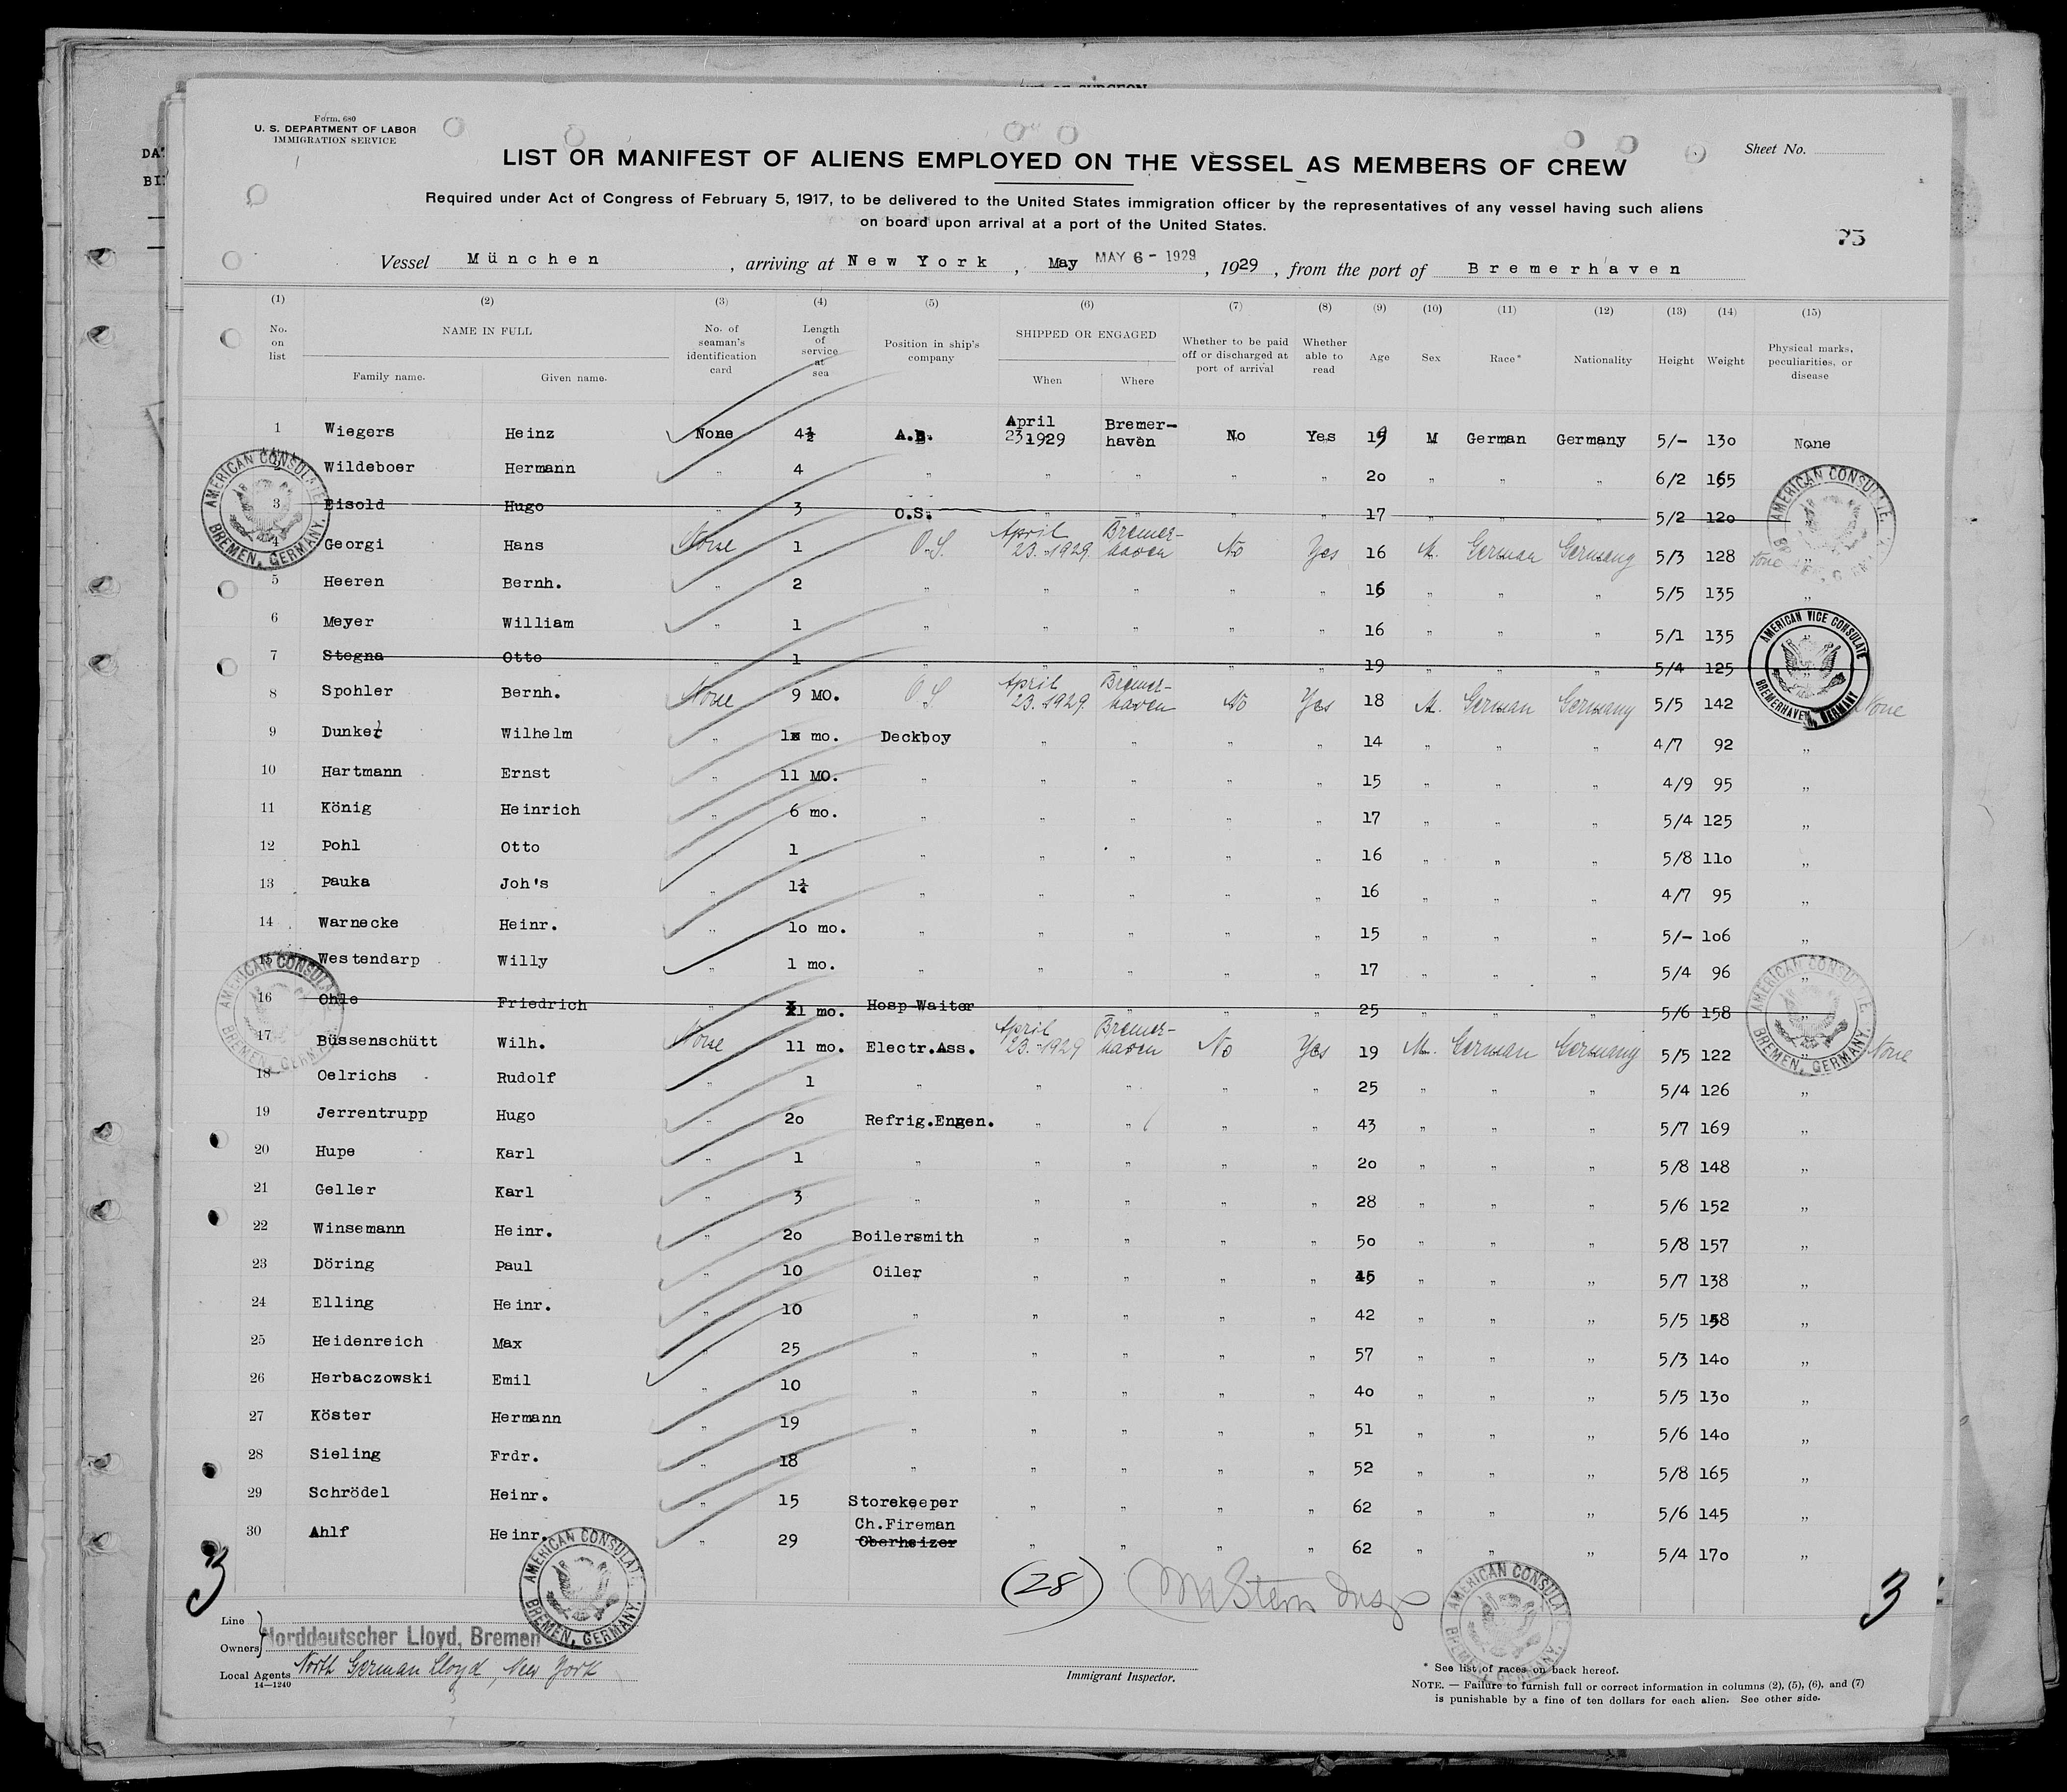 Form. 680
U. S. DEPARTMENT OF LABOR
IMMIGRATION SERVICE
Sheet No.
LIST OR MANIFEST OF ALIENS EMPLOYED ON THE VESSEL AS MEMBERS OF CREW
Required under Act of Congress of February 5, 1917, to be delivered to the United States immigration officer by the representatives of any vessel having such aliens
on board upon arrival at a port of the United States.
Vessel München, arriving at New York, May MAY 6 - 1929, 1929, from the port of Bremerhaven
(1) (2) (3) (4) (5) (6) (7) (8) (9) (10) (11) (12) (13) (14) (15)
No. on list NAME IN FULL Family name. Given name. No. of seaman's identification card Length of service at sea Position in ship's company SHIPPED OR ENGAGED When Where Whether to be paid off or discharged at port of arrival Whether able to read Age Sex Race* Nationality Height Weight Physical marks, peculiarities, or disease
1 Wiegers Heinz None 4½ A.B. April 23 1929 Bremer-haven No Yes 19 M German Germany 5/- 130 None
2 Wildeboer Hermann " 4 " " " " " 20 " " " 6/2 165
3 Eisold Hugo " 3 O.S. " " " " 17 " " " 5/2 120
4 Georgi Hans None 1 O.S. April 23.-1929 Bremer-haven No Yes 16 M. German Germany 5/3 128 None
5 Heeren Bernh. " 2 " " " " " 16 " " " 5/5 135 "
6 Meyer William " 1 " " " " " 16 " " " 5/1 135 "
7 Stegna Otto 1 " " " " " 19 " " " 5/4 125 "
8 Spohler Bernh. None 9 MO. O S April 23.-1929 Bremer-haven No Yes 18 M. German Germany 5/5 142 None
9 Dunker Wilhelm " mo. Deckboy " " " " 14 " " " 4/7 92 "
10 Hartmann Ernst " 11 MO. " " " " " 15 " " " 4/9 95 "
11 König Heinrich " 6 mo. " " " " " 17 " " " 5/4 125 "
12 Pohl Otto " 1 " " " " " 16 " " " 5/8 110 "
13 Pauka Joh's " 1¼ " " " " " 16 " " " 4/7 95 "
14 Warnecke Heinr. " 10 mo. " " " " " 15 " " " 5/- 106 "
15 Westendarp Willy " 1 mo. " " " " " 17 " " " 5/4 96 "
16 Ohle Friedrich " mo. Hosp Waiter " " " " 25 " " " 5/6 158 "
17 Büssenschütt Wilh. None 11 mo. Electr.Ass. April 23.-1929 Bremer-haven No Yes 19 M. German Germany 5/5 122 None
18 Oelrichs Rudolf " 1 " " " " " 25 " " " 5/4 126 "
19 Jerrentrupp Hugo " 20 Refrig.Engen. " " " " 43 " " " 5/7 169 "
20 Hupe Karl " 1 " " " " " 20 " " " 5/8 148 "
21 Geller Karl " 3 " " " " " 28 " " " 5/6 152 "
22 Winsemann Heinr. " 20 Boilersmith " " " " 50 " " " 5/8 157 "
23 Döring Paul " 10 Oiler " " " " 45 " " " 5/7 138 "
24 Elling Heinr. " 10 " " " " " 42 " " " 5/5 158 "
25 Heidenreich Max " 25 " " " " " 57 " " " 5/3 140 "
26 Herbaczowski Emil " 10 " " " " " 40 " " " 5/5 130 "
27 Köster Hermann " 19 " " " " " 51 " " " 5/6 140 "
28 Sieling Frdr. " 18 " " " " " 52 " " " 5/8 165 "
29 Schrödel Heinr. " 15 Storekeeper " " " " 62 " " " 5/6 145 "
30 Ahlf Heinr. " 29 Ch.Fireman Oberheizer " " " " 62 " " " 5/4 170 "
AMERICAN CONSULATE. BREMEN, GERMANY.
AMERICAN CONSULATE. BREMEN, GERMANY.
AMERICAN VICE CONSULATE BREMERHAVEN, GERMANY
AMERICAN CONSULATE. BREMEN, GERMANY.
AMERICAN CONSULATE. BREMEN, GERMANY.
AMERICAN CONSULATE. BREMEN, GERMANY.
AMERICAN CONSULATE. BREMEN, GERMANY.
3 (28) M Stern Insp 3
Line
Owners Norddeutscher Lloyd, Bremen
Local Agents North German Lloyd, New York
14—1240
Immigrant Inspector.
* See list of races on back hereof.
NOTE. — Failure to furnish full or correct information in columns (2), (5), (6), and (7)
is punishable by a fine of ten dollars for each alien. See other side.